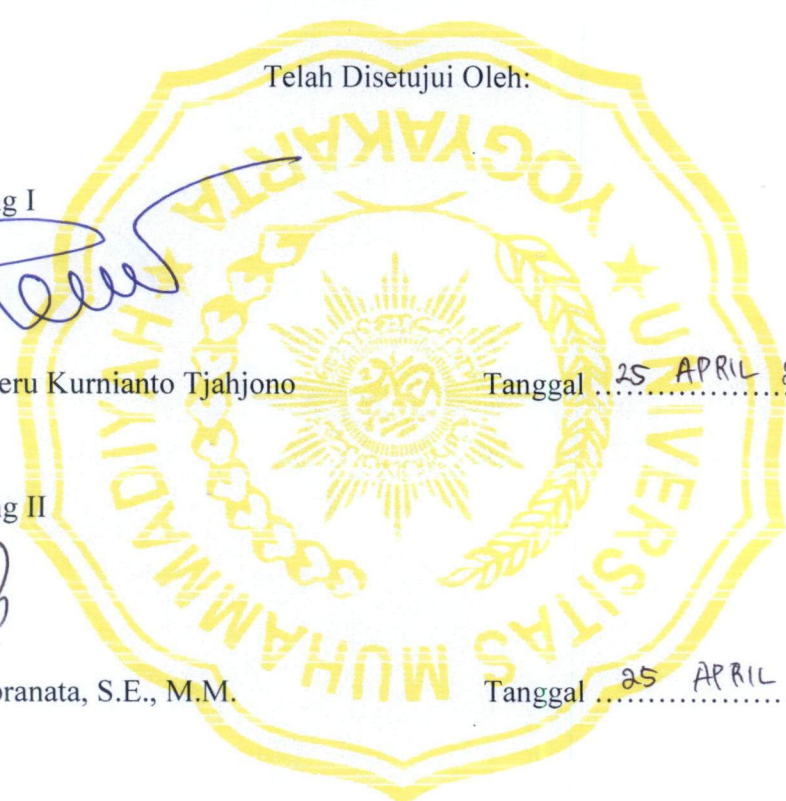 Telah Disetujui Oleh:
g I
eru Kurnianto Tjahjono
Tanggal 25 APRIL
g II
pranata, S.E., M.M.
Tanggal 25 APRIL
UNIVERSITAS MUHAMMADIYAH
YOGYAKARTA